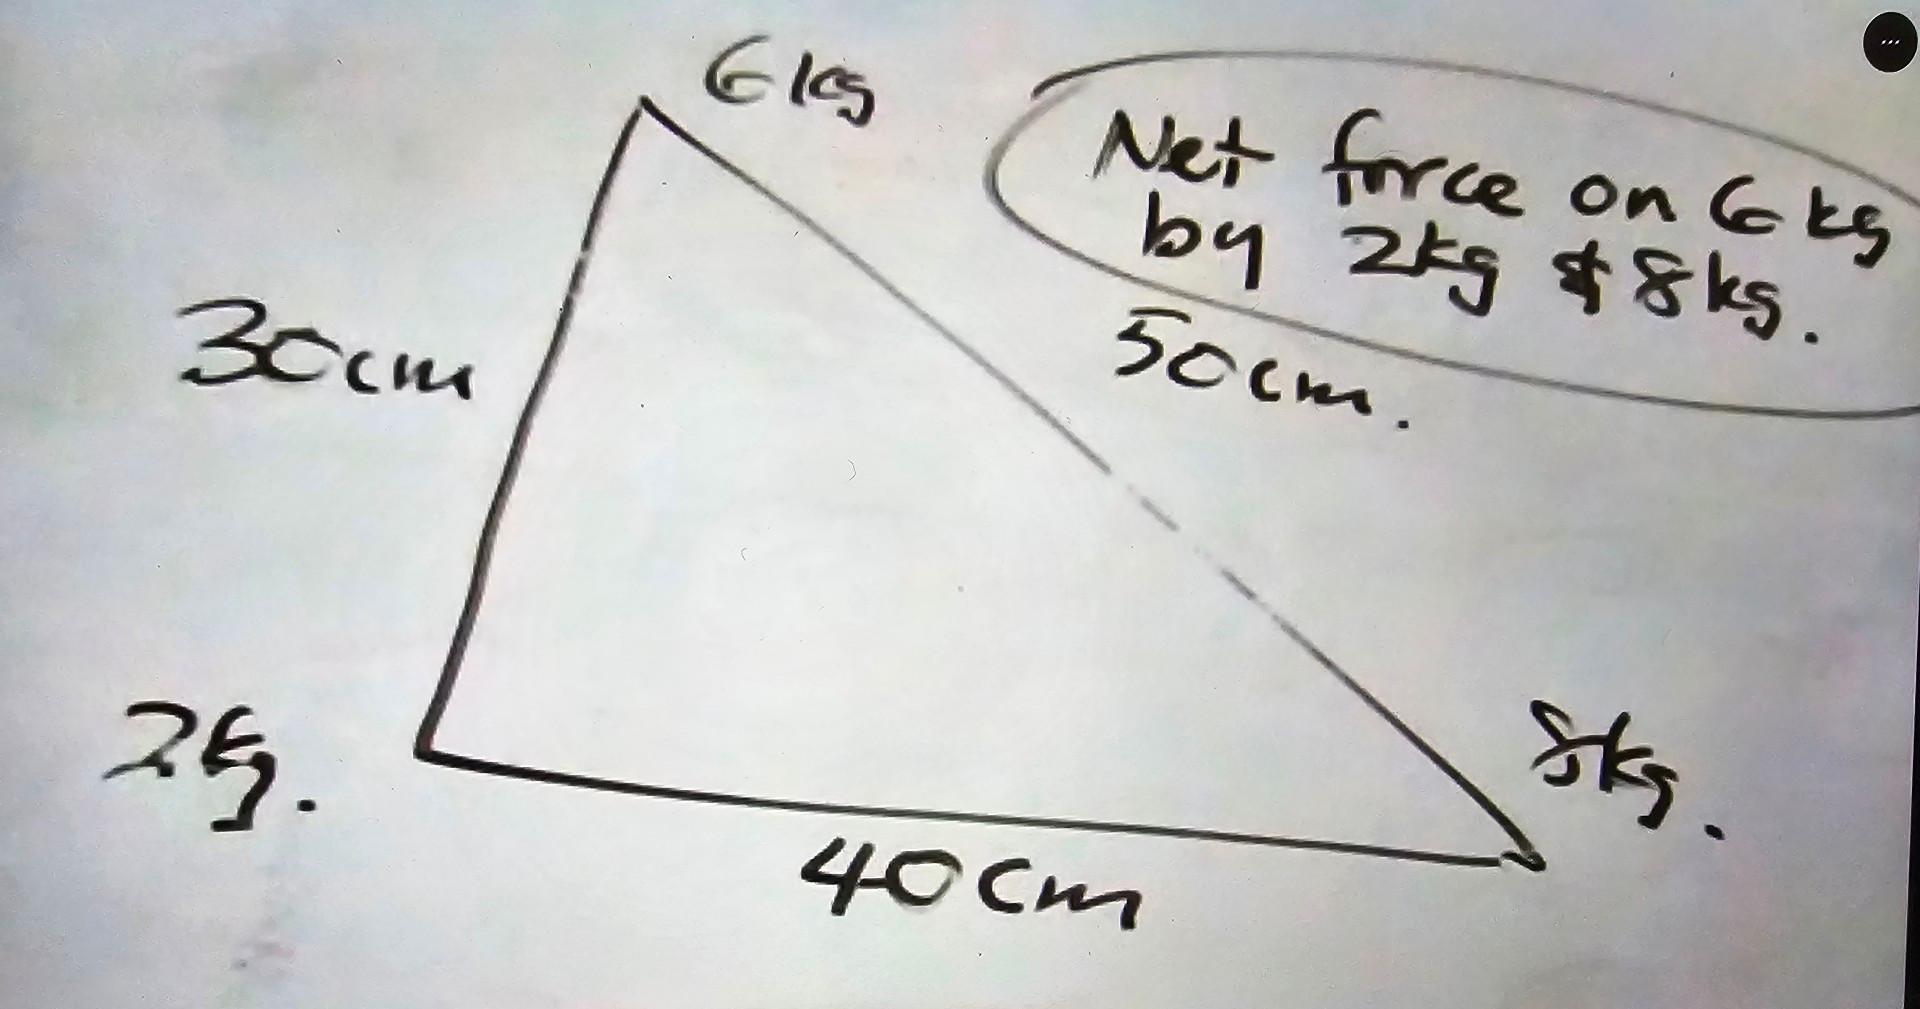 6kg
Net force on 6kg
by 2kg & 8kg.
30cm
50cm.
2kg.
8kg.
40cm